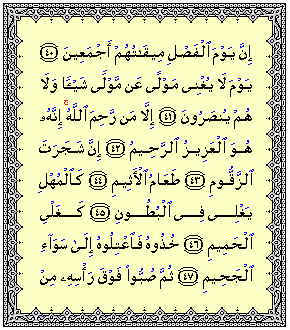 إِنَّ يَوْمَ ٱلْفَصْلِ مِيقَـٰتُهُمْ أَجْمَعِينَ ﴿٤٠﴾
يَوْمَ لَا يُغْنِى مَوْلًى عَن مَّوْلًى شَيْـًٔا وَلَا
هُمْ يُنصَرُونَ ﴿٤١﴾ إِلَّا مَن رَّحِمَ ٱللَّهُ ۚ إِنَّهُۥ
هُوَ ٱلْعَزِيزُ ٱلرَّحِيمُ ﴿٤٢﴾ إِنَّ شَجَرَتَ
ٱلزَّقُّومِ ﴿٤٣﴾ طَعَامُ ٱلْأَثِيمِ ﴿٤٤﴾ كَٱلْمُهْلِ
يَغْلِى فِى ٱلْبُطُونِ ﴿٤٥﴾ كَغَلْىِ
ٱلْحَمِيمِ ﴿٤٦﴾ خُذُوهُ فَٱعْتِلُوهُ إِلَىٰ سَوَآءِ
ٱلْجَحِيمِ ﴿٤٧﴾ ثُمَّ صُبُّوا۟ فَوْقَ رَأْسِهِۦ مِنْ